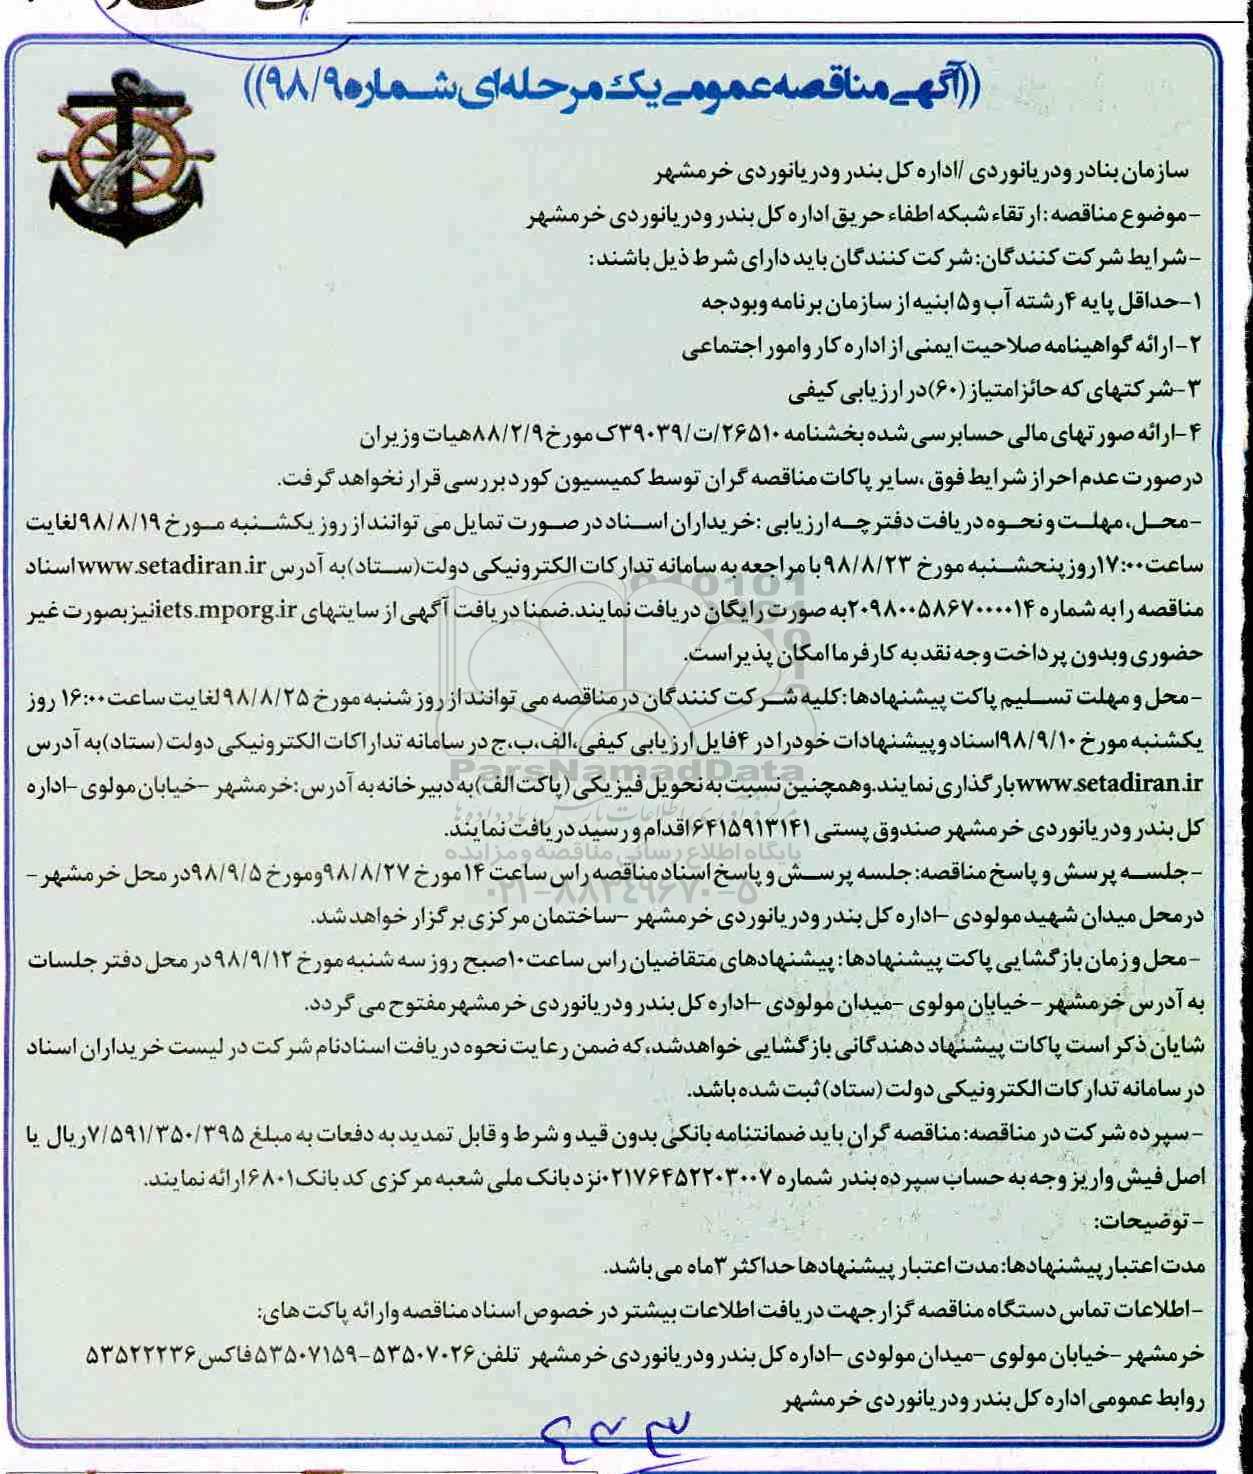 ((آگهی مناقصه عمومی یک مرحله ای شماره ۹۸/۹))
سازمان بنادر ودریانوردی /اداره کل بندر ودریانوردی خرمشهر
-موضوع مناقصه :ارتقاء شبکه اطفاء حریق اداره کل بندر ودریانوردی خرمشهر
-شرایط شرکت کنندگان: شرکت کنندگان باید دارای شرط ذیل باشند:
۱-حداقل پایه ۴رشته آب و۵ ابنیه از سازمان برنامه وبودجه
۲-ارائه گواهینامه صلاحیت ایمنی از اداره کار وامور اجتماعی
۳-شرکتهای که حائز امتیاز (۶۰)در ارزیابی کیفی
۴-ارائه صورتهای مالی حسابرسی شده بخشنامه ۲۶۵۱۰/ت/۳۹۰۳۹ک مورخ ۸۸/۲/۹هیات وزیران
درصورت عدم احراز شرایط فوق ،سایر پاکات مناقصه گران توسط کمیسیون کورد بررسی قرار نخواهد گرفت.
-محل، مهلت و نحوه دریافت دفترچه ارزیابی :خریداران اسناد در صورت تمایل می توانند از روز یکشنبه مورخ ۹۸/۸/۱۹لغایت
ساعت۱۷:۰۰روز پنجشنبه مورخ ۹۸/۸/۲۳با مراجعه به سامانه تدارکات الکترونیکی دولت(ستاد)به آدرس www.setadiran.ir اسناد
مناقصه را به شماره ۲۰۹۸۰۰۵۸۶۷۰۰۰۰۱۴به صورت رایگان دریافت نمایند.ضمنا دریافت آگهی از سایتهای iets.mporg.irنیز بصورت غیر
حضوری وبدون پرداخت وجه نقد به کارفرما امکان پذیر است.
-محل و مهلت تسلیم پاکت پیشنهادها :کلیه شرکت کنندگان درمناقصه می توانند از روز شنبه مورخ ۹۸/۸/۲۵لغایت ساعت۱۶:۰۰ روز
یکشنبه مورخ ۹۸/۹/۱۰اسناد و پیشنهادات خود را در ۴فایل ارزیابی کیفی،الف،ب،ج در سامانه تداراکات الکترونیکی دولت (ستاد)به آدرس
www.setadiran.irبارگذاری نمایند.وهمچنین نسبت به تحویل فیزیکی (پاکت الف)به دبیرخانه به آدرس :خرمشهر -خیابان مولوی -اداره
کل بندر ودریانوردی خرمشهر صندوق پستی ۶۴۱۵۹۱۳۱۴۱اقدام و رسید دریافت نمایند.
-جلسه پرسش و پاسخ مناقصه: جلسه پرسش و پاسخ اسناد مناقصه راس ساعت ۱۴مورخ ۹۸/۸/۲۷ومورخ ۹۸/۹/۵در محل خرمشهر -
در محل میدان شهید مولودی -اداره کل بندر ودریانوردی خرمشهر -ساختمان مرکزی برگزار خواهد شد.
-محل و زمان بازگشایی پاکت پیشنهادها: پیشنهادهای متقاضیان راس ساعت۱۰صبح روز سه شنبه مورخ ۹۸/۹/۱۲در محل دفتر جلسات
به آدرس خرمشهر -خیابان مولوی -میدان مولودی -اداره کل بندر ودریانوردی خرمشهر مفتوح می گردد.
شایان ذکر است پاکات پیشنهاد دهندگانی بازگشایی خواهدشد،که ضمن رعایت نحوه دریافت اسناد نام شرکت در لیست خریداران اسناد
در سامانه تدارکات الکترونیکی دولت (ستاد) ثبت شده باشد.
-سپرده شرکت در مناقصه: مناقصه گران باید ضمانتنامه بانکی بدون قید و شرط و قابل تمدید به دفعات به مبلغ ۷/۵۹۱/۳۵۰/۳۹۵ریال یا
اصل فیش واریز وجه به حساب سپرده بندر شماره ۰۲۱۷۶۴۵۲۲۰۳۰۰۷نزد بانک ملی شعبه مرکزی کد بانک ۶۸۰۱ارائه نمایند.
- توضیحات:
مدت اعتبار پیشنهادها: مدت اعتبار پیشنهادها حداکثر ۳ماه می باشد.
-اطلاعات تماس دستگاه مناقصه گزار جهت دریافت اطلاعات بیشتر در خصوص اسناد مناقصه وارائه پاکت های:
خرمشهر -خیابان مولوی -میدان مولودی -اداره کل بندر ودریانوردی خرمشهر تلفن ۵۳۵۰۷۰۲۶-۵۳۵۰۷۱۵۹فاکس ۵۳۵۲۲۲۳۶
روابط عمومی اداره کل بندر ودریانوردی خرمشهر
ParsNamadData
پایگاه اطلاع رسانی مناقصه و مزایده
۰۲۱-۸۸۳۴۹۶۷۰-۵